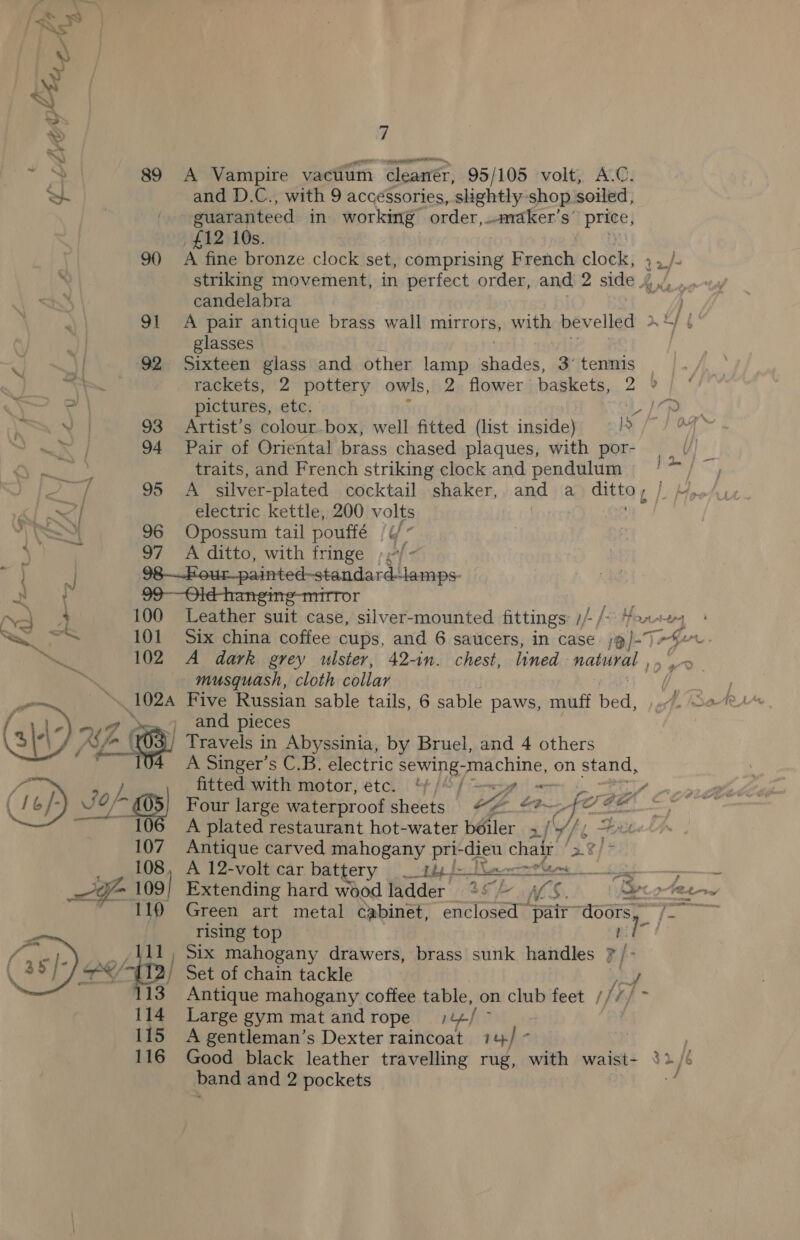 7
89 A Vampire vacuum cleaner, 95/105 volt, A.C.
and D.C., with 9 accessories, slightly shop soiled,
guaranteed in working order, maker's price,
£12 10s.
90 A fine bronze clock set, comprising French clock,
striking movement, in perfect order, and 2 side
candelabra
91 A pair antique brass wall mirrors, with bevelled
glasses
92 Sixteen glass and other lamp shades, 3 tennis
rackets, 2 pottery owls, 2 flower baskets, 2
pictures, etc.
93 Artist's colour box, well fitted (list inside)
94 Pair of Oriental brass chased plaques, with por-
traits, and French striking clock and pendulum
95 A silver-plated cocktail shaker, and a ditto,
electric kettle, 200 volts
96 Opossum tail pouffé
97 A ditto, with fringe
98 Four painted standard lamps
99 Old hanging mirror
100 Leather suit case, silver-mounted fittings
101 Six china coffee cups, and 6 saucers, in case
102 A dark grey ulster, 42-in. chest, lined natural
musquash, cloth collar
102A Five Russian sable tails, 6 sable paws, muff bed,
and pieces
103 Travels in Abyssinia, by Bruel, and 4 others
104 A Singer's C.B. electric sewing-machine, on stand,
fitted with motor, etc.
(16/-) 105 Four large waterproof sheets
106 A plated restaurant hot-water boiler
107 Antique carved mahogany pri-dieu chair
108 A 12-volt car battery
109 Extending hard wood ladder
110 Green art metal cabinet, enclosed pair doors,
rising top
111 Six mahogany drawers, brass sunk handles
(35/-) 112 Set of chain tackle
113 Antique mahogany coffee table, on club feet
114 Large gym mat and rope
115 A gentleman's Dexter raincoat
116 Good black leather travelling rug, with waist-
band and 2 pockets